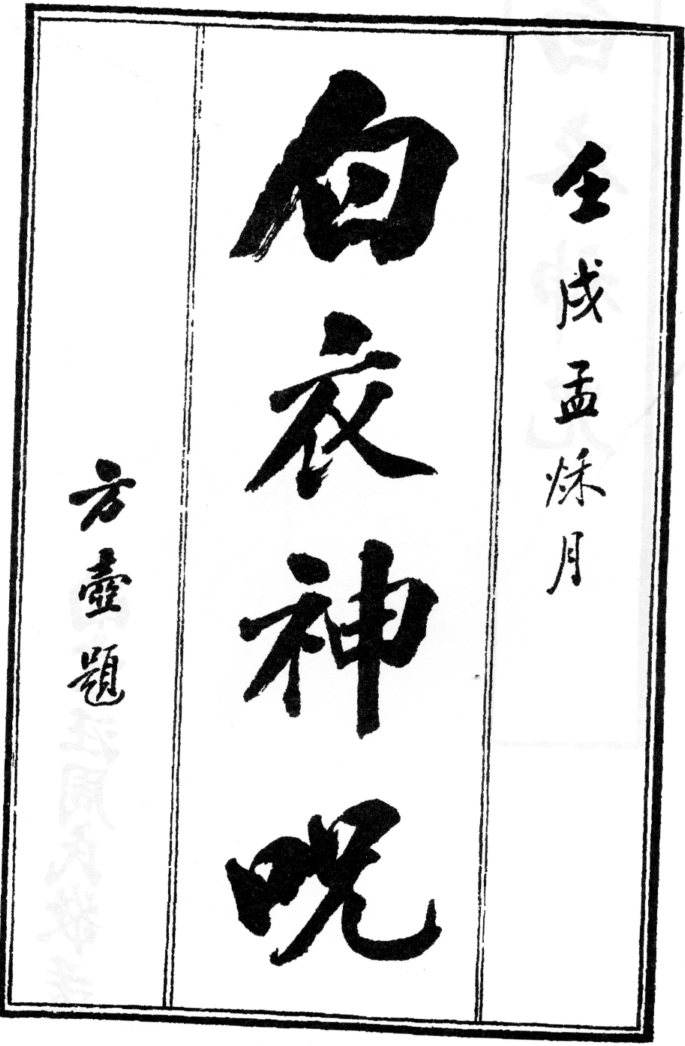 壬戌孟烁月
白衣神呪
方壺題